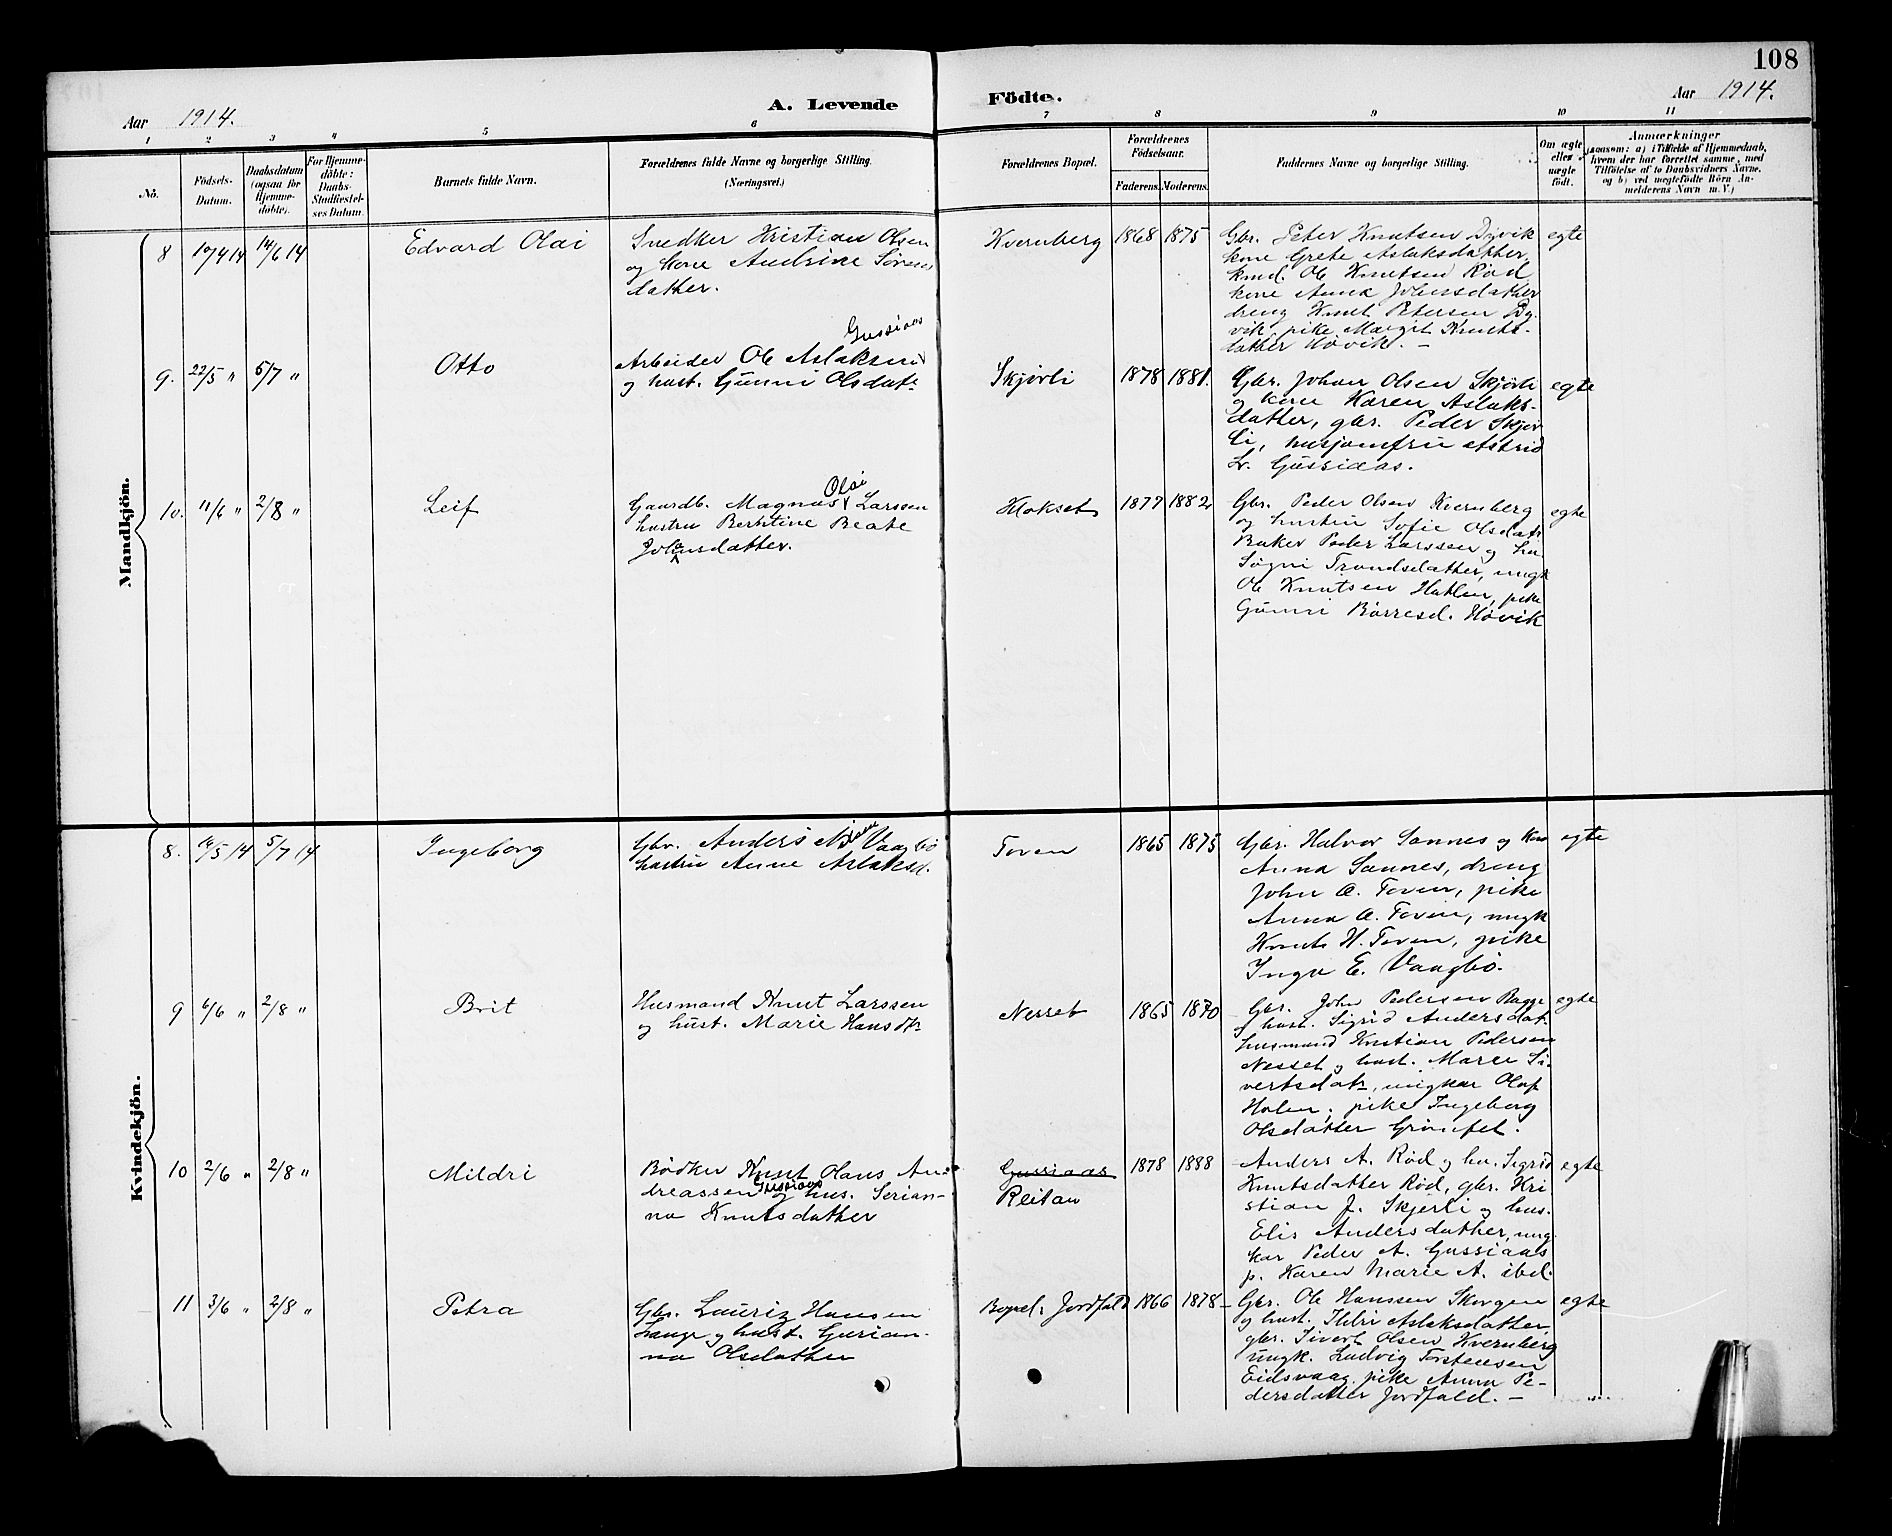 108
Aar 1914.
A. Levende
Födte.
Aar 1914.
1 2 3 4 5 6 7 8 9 10 11
No.
Födsels-
Datum.
Daabsdatum
(ogsaa for
Hjemme-
döbte).
For Hjemme-
döbte:
Daabs-
Stadfæstel-
ses Datum.
Barnets fulde Navn.
Forældrenes fulde Navne og borgerlige Stilling.
(Næringsvei.)
Forældrenes Bopæl.
Forældrenes
Födselsaar.
Faderens. Moderens.
Faddernes Navne og borgerlige Stilling.
Om ægte
eller
uægte
födt.
Anmærkninger
saasom: a) i Tilfælde af Hjemmedaab,
hvem der har forrettet samme, med
Tilföielse af to Daabsvidners Navne,
og b) ved uægtefödte Börn An-
melderens Navn m. V.)
Mandkjön.
8 10/4 14 14/6 14
Edvard Olai
Snedker Kristian Olsen
og kone Andrine Søren
datter.
Kvernberg
1868 1875
Gbr. Peter Knutsen Dyvik
kone Grete Aslaksdatter,
kmd. Ole Knutsen Rød
kone Anna Johnsdatter
dreng Knut Petersen Dy-
vik, pike Margit Knuts-
datter Høvik. —
egte
9. 22/5 " 5/7 "
Otto
Gussiaas
Arbeider Ole Aslaksen
og hust. Gunni Olsdatr
Skjørli
1878 1881.
Gbr. Johan Olsen Skjørli
og kone Karen Aslaks-
datter, gbr. Peder Skjør
li, husjomfru Astrid
L. Gussiaas.
egte
10. 11/6 " 2/8 "
Leif
Olai
Gaardb. Magnus Larssen
hustru Berntine Beate
Johansdatter.
Hokset
1877 1882
Gbr. Peder Olsen Kvernberg
og hustru Sofie Olsdatr
Baker Peder Larssen og hu.
Søgni Trondsdatter, ungk
Ole Knutsen Hatlen, pike
Gunni Børresd. Høvik
egte
Kvindekjön.
8. 5/5 14 5/7 14
Ingeborg
Gbr. Anders Vaagbø
hustru Anne Aslaksd.
Toven
1865 1875
Gbr. Halvor Sannes og kone
Anna Sannes, dreng
John A. Toven, pike
Anna A. Toven, ungk
Knut H. Toven, pike
Inga E. Vaagbø.
egte
9 6/6 " 2/8 "
Brit
Husmand Knut Larssen
og hust. Marie Hansdtr
Nesset
1865 1870
Gbr. John Pedersen Bagge
og hust. Sigrid Andersdat.
husmand Kristian Pedersen
Nesset og hust. Marie Si-
vertsdatr, ungkar Olaf
Holen, pike Ingeborg
Olsdatter Grønset.
egte
10 2/6 " 2/8 "
Mildri
Bødker Knut Olaus An-
dreassen Gussiaas og hus. Serian-
na Knutsdatter
Gussiaas
Reitan
1878 1888
Anders A. Rød og hu. Sigrid
Knutsdatter Rød, gbr. Kri
stian J. Skjørli og hus.
Elis Andersdatter, ung
kar Peder A. Gussiaas
p. Karen Marie A. ibd.
egte
11 3/6 " 2/8 "
Petra
Gbr. Lauriz Hansen
Lange og hust. Gurian-
na Olsdatter
Bopel: Jordfald
1866 1878
Gbr. Ole Hanssen Skorgen
og hust. Ildri Aslaksdatter,
gbr. Sivert Olsen Kvernberg
ungk. Ludvig Torstensen
Eidsvaag, pike Anna Pe-
dersdatter Jordfald. —
egte